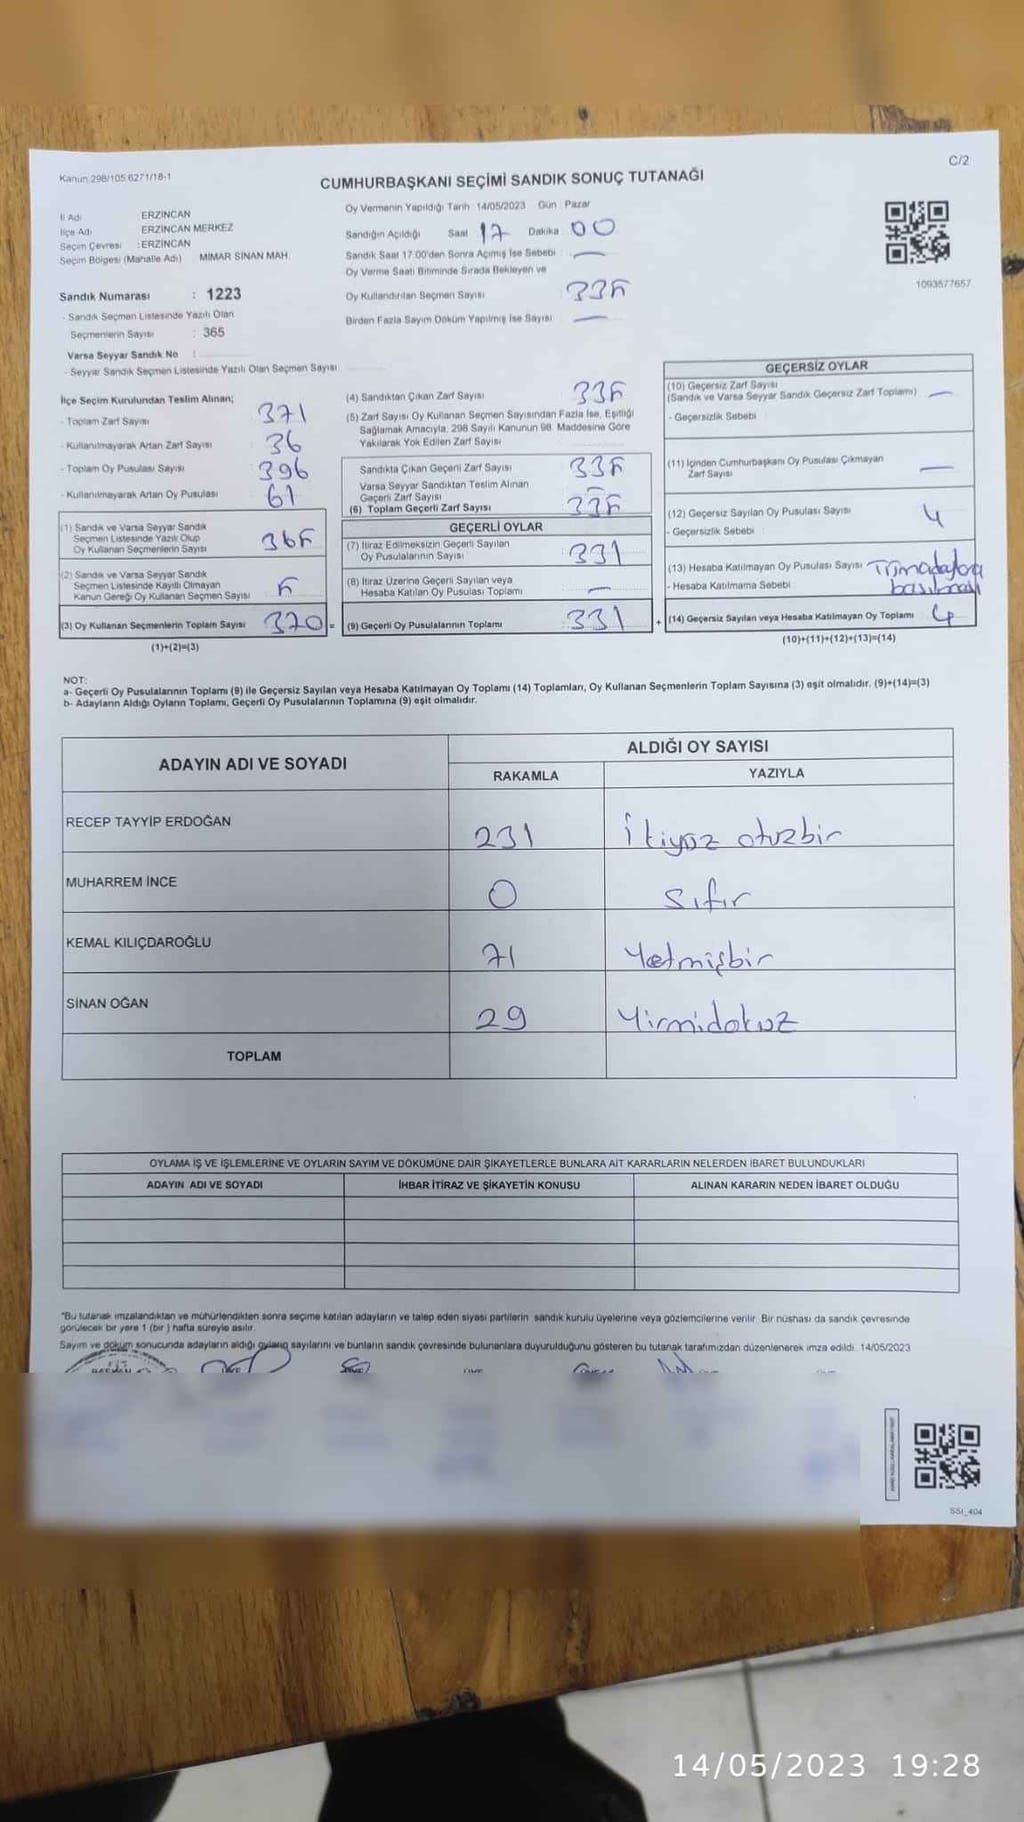 Kanun 298/105 6271/18-1
C/2
CUMHURBAŞKANI SEÇİMİ SANDIK SONUÇ TUTANAĞI
İl Adı ERZİNCAN
İlçe Adı ERZİNCAN MERKEZ
Seçim Çevresi : ERZİNCAN
Seçim Bölgesi (Mahalle Adı) MİMAR SİNAN MAH.
Sandık Numarası : 1223
- Sandık Seçmen Listesinde Yazılı Olan
Seçmenlerin Sayısı : 365
Varsa Seyyar Sandık No :
- Seyyar Sandık Seçmen Listesinde Yazılı Olan Seçmen Sayısı
Oy Vermenin Yapıldığı Tarih 14/05/2023 Gün Pazar
Sandığın Açıldığı Saat 17 Dakika 00
Sandık Saat 17:00'den Sonra Açımış İse Sebebi : —
Oy Verme Saati Bitiminde Sırada Bekleyen ve
Oy Kullandırılan Seçmen Sayısı 335
Birden Fazla Sayım Döküm Yapılmış İse Sayısı —
1093577657
İlçe Seçim Kurulundan Teslim Alınan;
- Toplam Zarf Sayısı 371
- Kullanılmayarak Artan Zarf Sayısı 36
- Toplam Oy Pusulası Sayısı 396
- Kullanılmayarak Artan Oy Pusulası 61
(1) Sandık ve Varsa Seyyar Sandık
Seçmen Listesinde Yazılı Olup
Oy Kullanan Seçmenlerin Sayısı 365
(2) Sandık ve Varsa Seyyar Sandık
Seçmen Listesinde Kayıtlı Olmayan
Kanun Gereği Oy Kullanan Seçmen Sayısı 5
(3) Oy Kullanan Seçmenlerin Toplam Sayısı 370 =
(1)+(2)=(3)
(4) Sandıktan Çıkan Zarf Sayısı 335
(5) Zarf Sayısı Oy Kullanan Seçmen Sayısından Fazla İse, Eşitliği
Sağlamak Amacıyla, 298 Sayılı Kanunun 98. Maddesine Göre
Yakılarak Yok Edilen Zarf Sayısı
Sandıkta Çıkan Geçerli Zarf Sayısı 335
Varsa Seyyar Sandıktan Teslim Alınan
Geçerli Zarf Sayısı —
(6) Toplam Geçerli Zarf Sayısı 335
GEÇERLİ OYLAR
(7) İtiraz Edilmeksizin Geçerli Sayılan
Oy Pusulalarının Sayısı 331
(8) İtiraz Üzerine Geçerli Sayılan veya
Hesaba Katılan Oy Pusulası Toplamı —
(9) Geçerli Oy Pusulalarının Toplamı 331 +
GEÇERSİZ OYLAR
(10) Geçersiz Zarf Sayısı
(Sandık ve Varsa Seyyar Sandık Geçersiz Zarf Toplamı) —
- Geçersizlik Sebebi :
(11) İçinden Cumhurbaşkanı Oy Pusulası Çıkmayan
Zarf Sayısı —
(12) Geçersiz Sayılan Oy Pusulası Sayısı 4
- Geçersizlik Sebebi :
(13) Hesaba Katılmayan Oy Pusulası Sayısı
- Hesaba Katılmama Sebebi :
(14) Geçersiz Sayılan veya Hesaba Katılmayan Oy Toplamı 4
(10)+(11)+(12)+(13)=(14)
NOT:
a- Geçerli Oy Pusulalarının Toplamı (9) ile Geçersiz Sayılan veya Hesaba Katılmayan Oy Toplamı (14) Toplamları, Oy Kullanan Seçmenlerin Toplam Sayısına (3) eşit olmalıdır. (9)+(14)=(3)
b- Adayların Aldığı Oyların Toplamı, Geçerli Oy Pusulalarının Toplamına (9) eşit olmalıdır.
ADAYIN ADI VE SOYADI
ALDIĞI OY SAYISI
RAKAMLA YAZIYLA
RECEP TAYYİP ERDOĞAN 231 İkiyüz otuzbir
MUHARREM İNCE 0 Sıfır
KEMAL KILIÇDAROĞLU 71 Yetmişbir
SİNAN OĞAN 29 Yirmidokuz
TOPLAM
OYLAMA İŞ VE İŞLEMLERİNE VE OYLARIN SAYIM VE DÖKÜMÜNE DAİR ŞİKAYETLERLE BUNLARA AİT KARARLARIN NELERDEN İBARET BULUNDUKLARI
ADAYIN ADI VE SOYADI İHBAR İTİRAZ VE ŞİKAYETİN KONUSU ALINAN KARARIN NEDEN İBARET OLDUĞU
*Bu tutanak imzalandıktan ve mühürlendikten sonra seçime katılan adayların ve talep eden siyasi partilerin sandık kurulu üyelerine veya gözlemcilerine verilir. Bir nüshası da sandık çevresinde
görülecek bir yere 1 (bir) hafta süreyle asılır.
Sayım ve döküm sonucunda adayların aldığı oyların sayılarını ve bunların sandık çevresinde bulunanlara duyurulduğunu gösteren bu tutanak tarafımızdan düzenlenerek imza edildi. 14/05/2023
SSI_404
14/05/2023 19:28